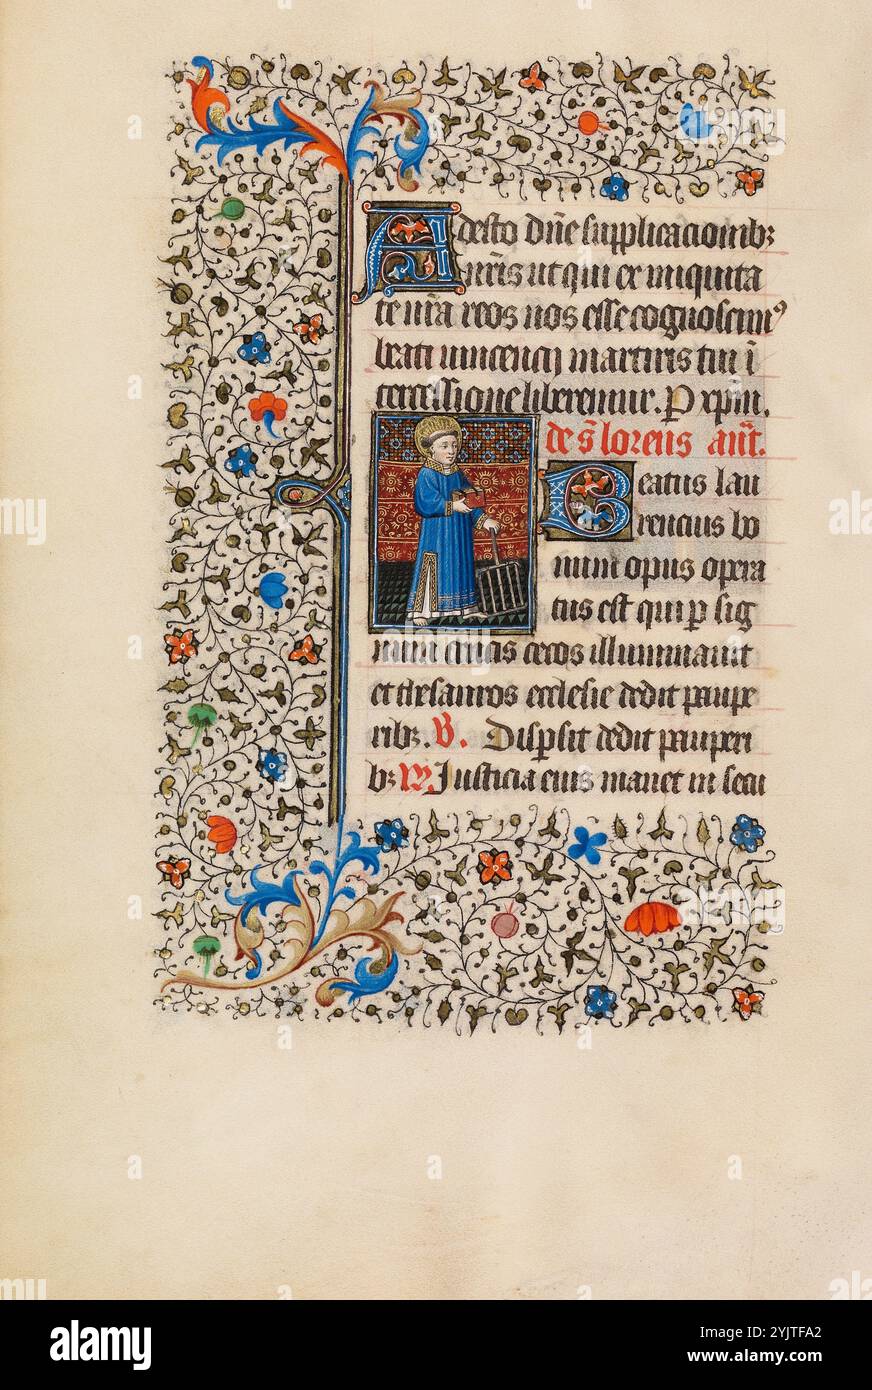 Adesto dñe supplicacionibꝫ
nr̃is ut qui ex iniquita
te nr̃a reos nos esse cognoscimꝰ
beati vincencij martiris tui ĩ
tercessione liberemur. P xpm̃.
de s̃ lorens añt.
Beatus lau
rencius bo
num opus opera
tus est qui p sig
num crucis cecos illuminauit
et thesauros ecclesie dedit paupe
ribꝫ. V. Dispsit dedit pauperi
bꝫ R̃. Justicia eius manet in secu
alamy
a
alamy
Image ID: 2YJTFA2
www.alamy.com